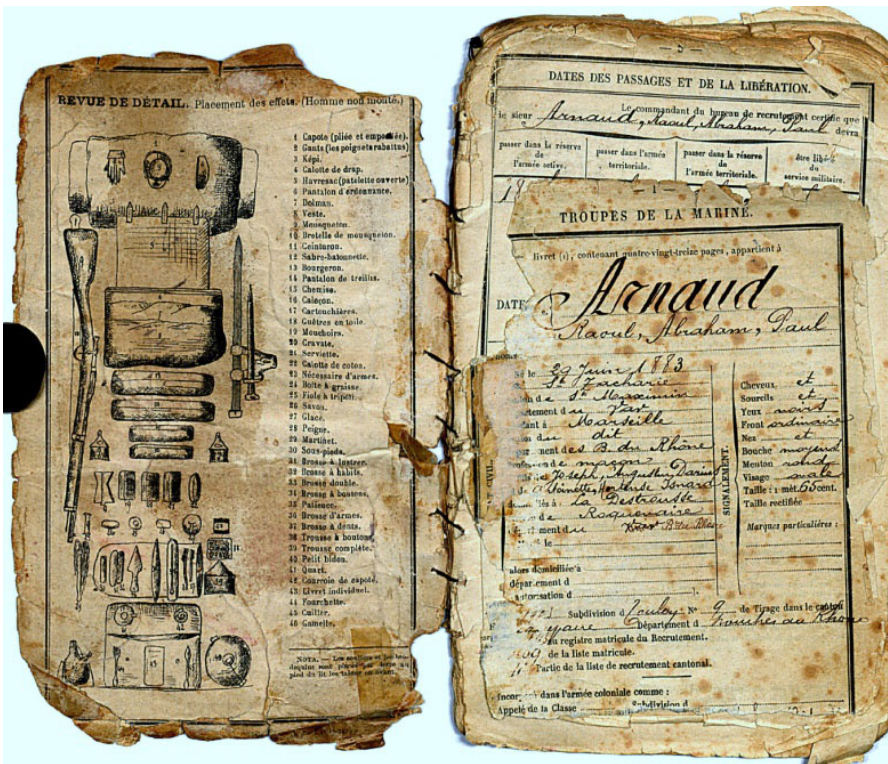 REVUE DE DÉTAIL. Placement des effets. (Homme non monté.)
1 Capote (pliée et empochée).
2 Gants (les poignets rabattus)
3 Képi.
4 Calotte de drap.
5 Havresac (patelette ouverte)
6 Pantalon d'ordonnance.
7 Dolman.
8 Veste.
9 Mousqueton.
10 Bretelle de mousqueton.
11 Ceinturon.
12 Sabre-baïonnette.
13 Bourgeron.
14 Pantalon de treillis.
15 Chemise.
16 Caleçon.
17 Cartouchières.
18 Guêtres en toile.
19 Mouchoirs.
20 Cravate.
21 Serviette.
22 Calotte de coton.
23 Nécessaire d'armes.
24 Boîte à graisse.
25 Fiole à tripoli.
26 Savon.
27 Glace.
28 Peigne.
29 Martinet.
30 Sous-pieds.
31 Brosse à lustrer.
32 Brosse à habits.
33 Brosse double.
34 Brosse à boutons.
35 Patience.
36 Brosse d'armes.
37 Brosse à dents.
38 Trousse à boutons.
39 Trousse complète.
40 Petit bidon.
41 Quart.
42 Courroie de capote.
43 Livret individuel.
44 Fourchette.
45 Cuiller.
46 Gamelle.
NOTA. — Les souliers et les
sont placés
pied du lit les talons en avant.
— 5 —
DATES DES PASSAGES ET DE LA LIBÉRATION.
Le commandant du bureau de recrutement certifie que
le sieur Arnaud, Raoul, Abraham, Paul devra
passer dans la réserve de l'armée active.
passer dans l'armée territoriale.
passer dans la réserve de l'armée territoriale.
être libéré du service militaire.
— 1 —
TROUPES DE LA MARINE.
livret (1), contenant quatre-vingt-treize pages, appartient à
DATE
Arnaud
Raoul, Abraham, Paul
le 29 Juin 1883
St Zacharie
de St Maximin
tement du Var
à Marseille
du dit
des B. du Rhône
de maçon
de Joseph, Augustin, Darius
Isnard
à La Destrousse
de Roquevaire
ment du B. du Rhône
le
alors domiciliés à
département d
d
ÉTAT CIVIL.
SIGNALEMENT.
Cheveux et
Sourcils et
Yeux noirs
Front ordinaire
Nez et
Bouche moyenne
Menton rond
Visage ovale
Taille : 1 mèt. 65 cent.
Taille rectifiée
Marques particulières :
Subdivision d Toulon N° 9 de Tirage dans le canton
Département d Bouches du Rhône
au registre matricule du Recrutement.
de la liste matricule.
Partie de la liste de recrutement cantonal.
dans l'armée coloniale comme :
Appelé de la Classe Subdivision d